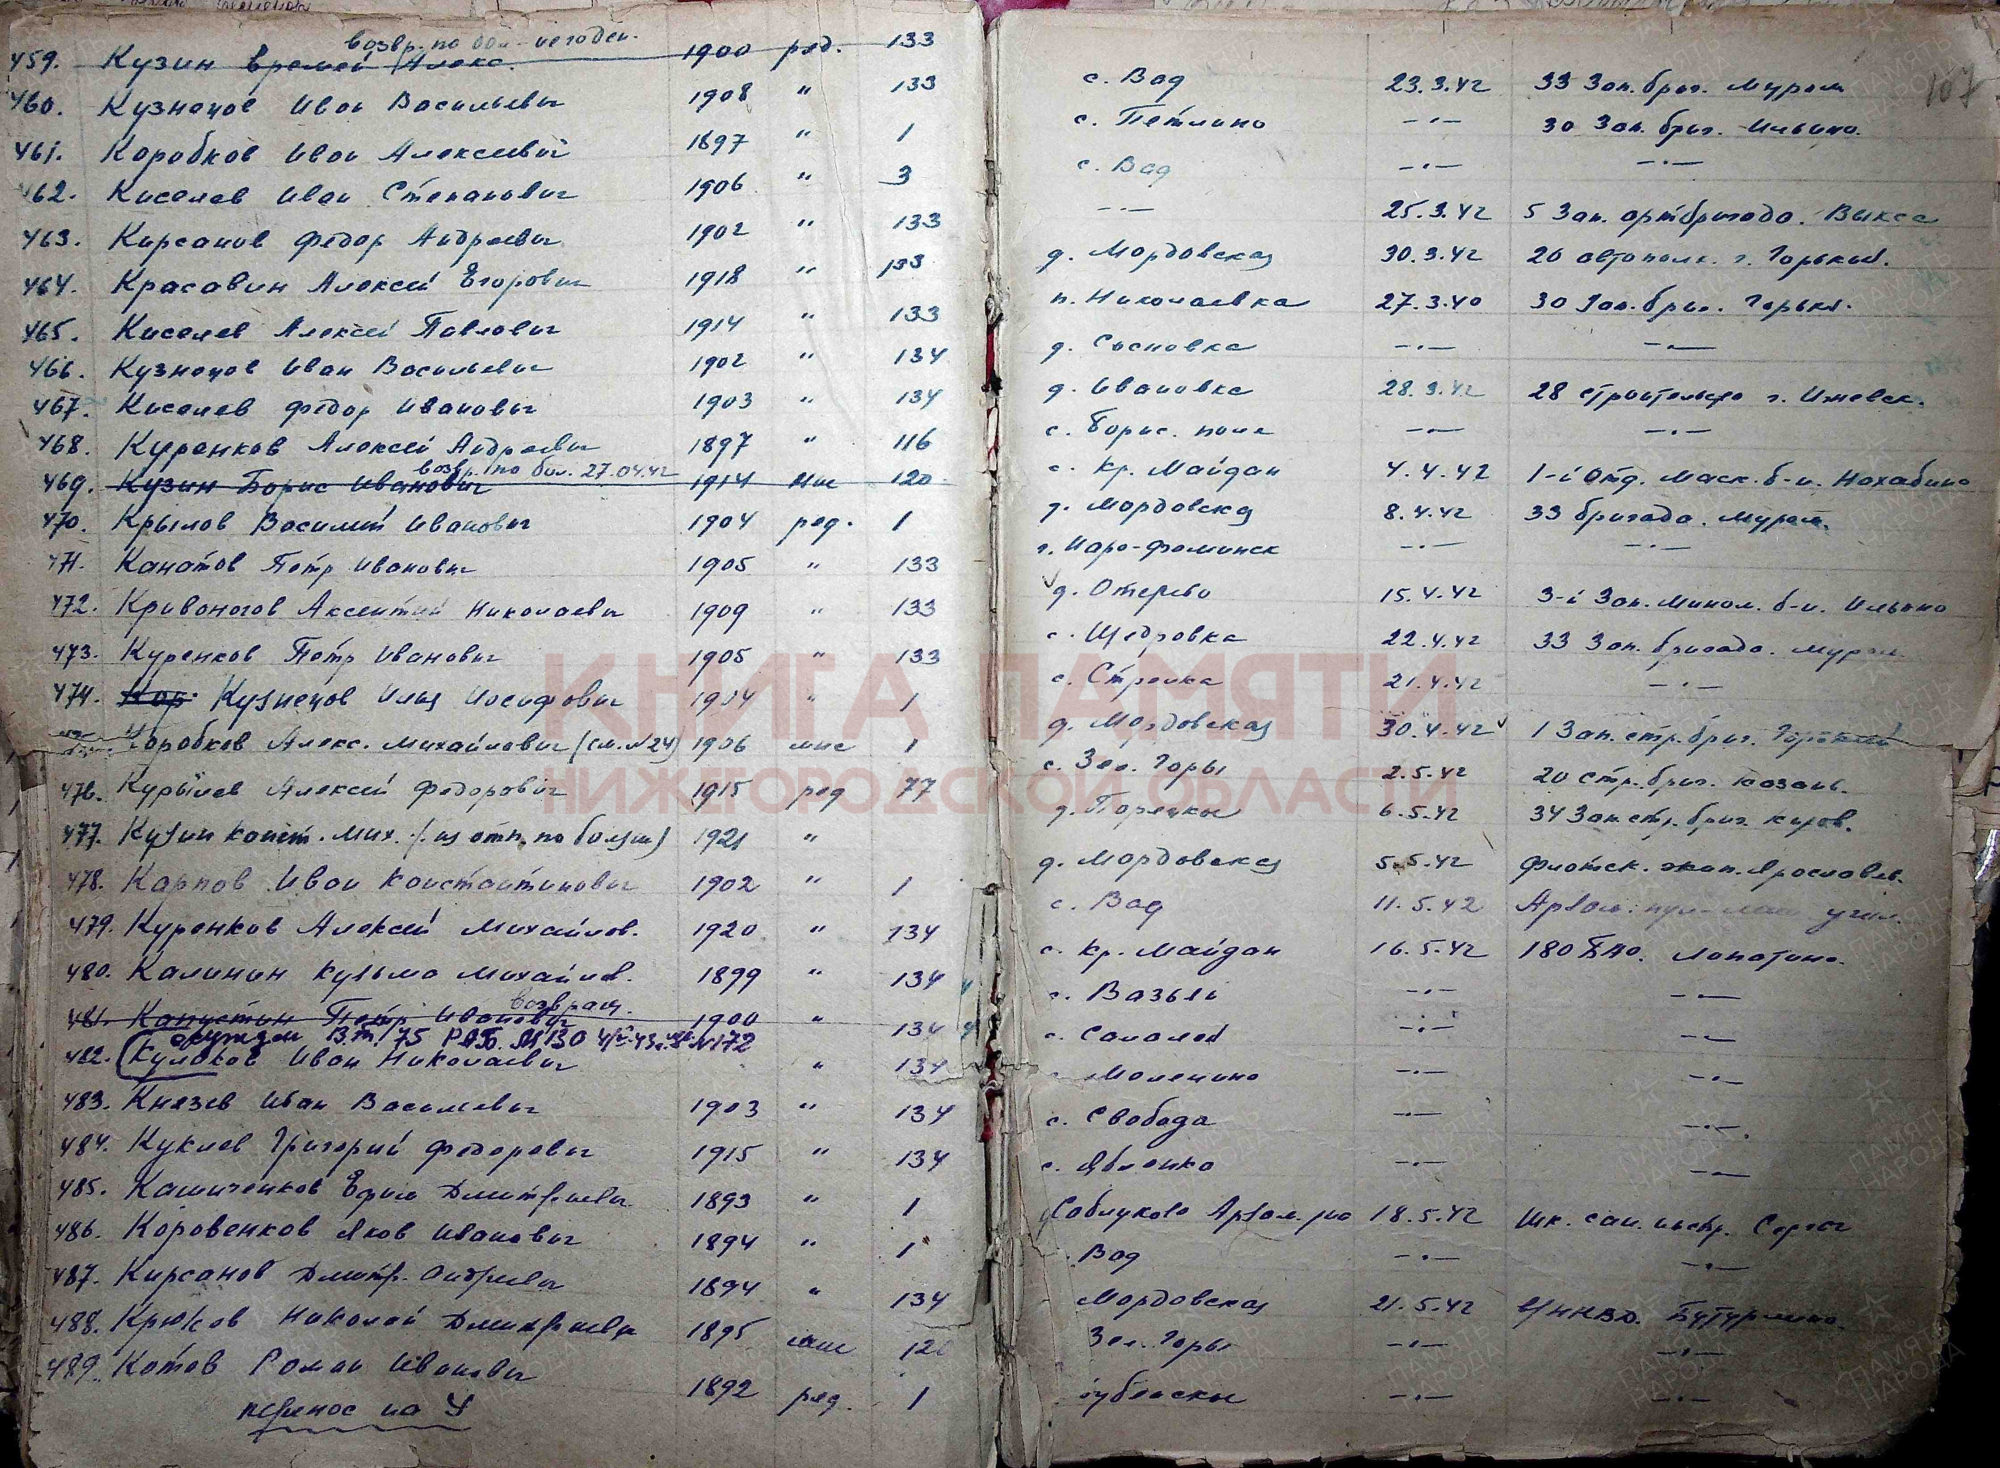 возвр. по бол - негоден.
459. Кузин Еремей Алекс. 1900 ряд. 133
460. Кузнецов Иван Васильевич 1908 " 133
461. Коробков Иван Алексеевич 1897 " 1
462. Киселев Иван Степанович 1906 " 3
463. Кирсанов Федор Андреевич 1902 " 133
464. Красавин Алексей Егорович 1918 " 133
465. Киселев Алексей Павлович 1914 " 133
466. Кузнецов Иван Васильевич 1902 " 134
467. Киселев Федор Иванович 1903 " 134
468. Куренков Алексей Андреевич 1897 " 116
возвр. по бол. 27.04.42
469. Кузин Борис Иванович 1914 мнс 120
470. Крылов Василий Иванович 1904 ряд. 1
471. Канатов Петр Иванович 1905 " 133
472. Кривоногов Аксентий Николаевич 1909 " 133
473. Куренков Петр Иванович 1905 " 133
474. Кор Кузнецов Илья Иосифович 1904 " 1
Коробков Алекс. Михайлович (см. №24) 1906 мнс 1
476. Курылев Алексей Федорович 1915 ряд 77
477. Кузин Конст. Мих. (из отп. по болезни) 1921 "
478. Карпов Иван Константинович 1902 " 1
479. Куренков Алексей Михайлов. 1920 " 134
480. Калинин Кузьма Михайлов. 1899 " 134
возвращ.
481. Капустин Петр Иванович 1900 " 134
482. Кулаков Иван Николаевич " 134
483. Князев Иван Васильевич 1903 " 134
484. Куклев Григорий Федорович 1915 " 134
485. Камиченков Ефим Дмитриевич 1893 " 1
486. Коровенков Яков Иванович 1894 " 1
487. Кирсанов Дмитр. Андреевич 1894 " 134
488. Крюков Николай Дмитриевич 1895 мнс 120
489. Котов Роман Иванович 1892 ряд. 1
перенос на У
107
с. Вад 23.3.42 33 Зап. бриг. Муром
с. Петлино –·– 30 Зап. бриг. Ильино.
с. Вад –·– –·–
–·– 25.3.42 5 Зап. артбригада. Выкса
д. Мордовская 30.3.42 20 автополк. г. Горький.
п. Николаевка 27.3.40 30 Зап. бриг. Горьк.
д. Сосновка –·– –·–
д. Ивановка 28.3.42 28 строительн г. Ижевск.
с. Борис. поле –·– –·–
с. Кр. Майдан 4.4.42 1-й Отд. Маск. б-н. Нахабино
д. Мордовска 8.4.42 33 бригада. Муром.
г. Наро-Фоминск –·– –·–
д. Отерево 15.4.42 3-й Зап. Мином. б-н. Ильино
с. Щедровка 22.4.42 33 Зап. бригада. Муром.
с. Стрелка 21.4.42 –·–
д. Мордовская 30.4.42 1 Зап. стр. бриг. Горький
с. Зел. Горы 2.5.42 20 стр. бриг. Казань.
д. Порецкое 6.5.42 34 Зап стр. бриг. Киров.
д. Мордовская 5.5.42 флотск. экип. Ярославль.
с. Вад 11.5.42 Арзам. пул-мин. учил.
с. Кр. Майдан 16.5.42 180 БАО. Лопатино.
с. Вазьян –·– –·–
с. Салалей –·– –·–
Молечино –·– –·–
с. Свобода –·– –·–
с. Яблонка –·– –·–
Саблуково Арзам. рно 18.5.42 Шк. сан. инстр. Сергач
Вад –·– –·–
Мордовская 21.5.42 НКВД. Бутурлино.
Зел. Горы –·– –·–
–·– –·–
КНИГА ПАМЯТИ
НИЖЕГОРОДСКОЙ ОБЛАСТИ
ПАМЯТЬ НАРОДА